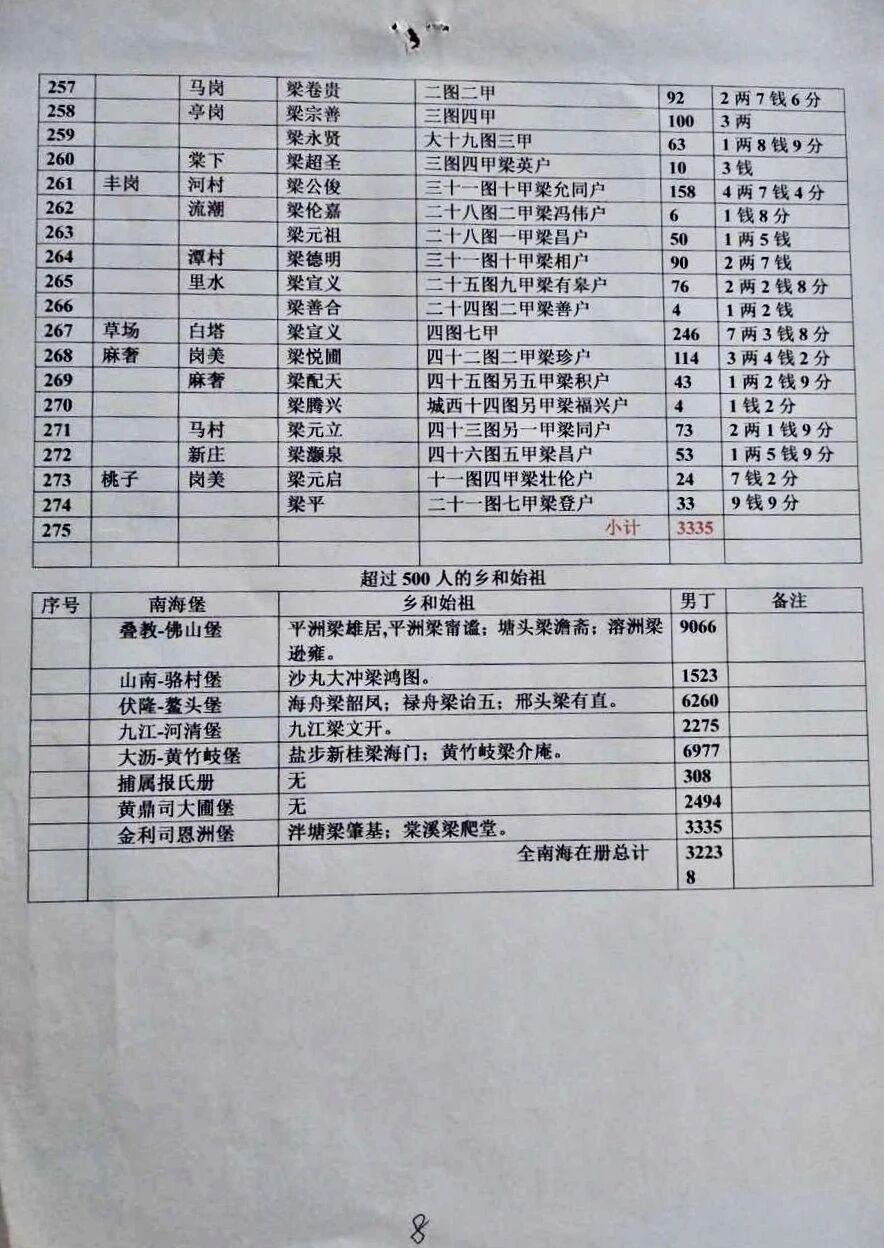 257 马岗 梁卷贵 二图二甲 92 2两7钱6分
258 亭岗 梁宗善 三图四甲 100 3两
259 梁永贤 大十九图三甲 63 1两8钱9分
260 棠下 梁超圣 三图四甲梁英户 10 3钱
261 丰岗 河村 梁公俊 三十一图十甲梁允同户 158 4两7钱4分
262 流潮 梁伦嘉 二十八图二甲梁冯伟户 6 1钱8分
263 梁元祖 二十八图一甲梁昌户 50 1两5钱
264 潭村 梁德明 三十一图十甲梁相户 90 2两7钱
265 里水 梁宣义 二十五图九甲梁有皋户 76 2两2钱8分
266 梁善合 二十四图二甲梁善户 4 1两2钱
267 草场 白塔 梁宣义 四图七甲 246 7两3钱8分
268 麻奢 岗美 梁悦圃 四十二图二甲梁珍户 114 3两4钱2分
269 麻奢 梁配天 四十五图另五甲梁积户 43 1两2钱9分
270 梁腾兴 城西十四图另甲梁福兴户 4 1钱2分
271 马村 梁元立 四十三图另一甲梁同户 73 2两1钱9分
272 新庄 梁灏泉 四十六图五甲梁昌户 53 1两5钱9分
273 桃子 岗美 梁元启 十一图四甲梁壮伦户 24 7钱2分
274 梁平 二十一图七甲梁登户 33 9钱9分
275 小计 3335
超过500人的乡和始祖
序号 南海堡 乡和始祖 男丁 备注
叠教-佛山堡 平洲梁雄居,平洲梁甯谧；塘头梁澹斋；溶洲梁 9066
逊雍。
山南-骆村堡 沙丸大冲梁鸿图。 1523
伏隆-鳌头堡 海舟梁韶凤；禄舟梁诒五；邢头梁有直。 6260
九江-河清堡 九江梁文开。 2275
大沥-黄竹岐堡 盐步新桂梁海门；黄竹岐梁介庵。 6977
捕属报氏册 无 308
黄鼎司大圃堡 无 2494
金利司恩洲堡 泮塘梁肇基；棠溪梁爬堂。 3335
全南海在册总计 3223
8
8